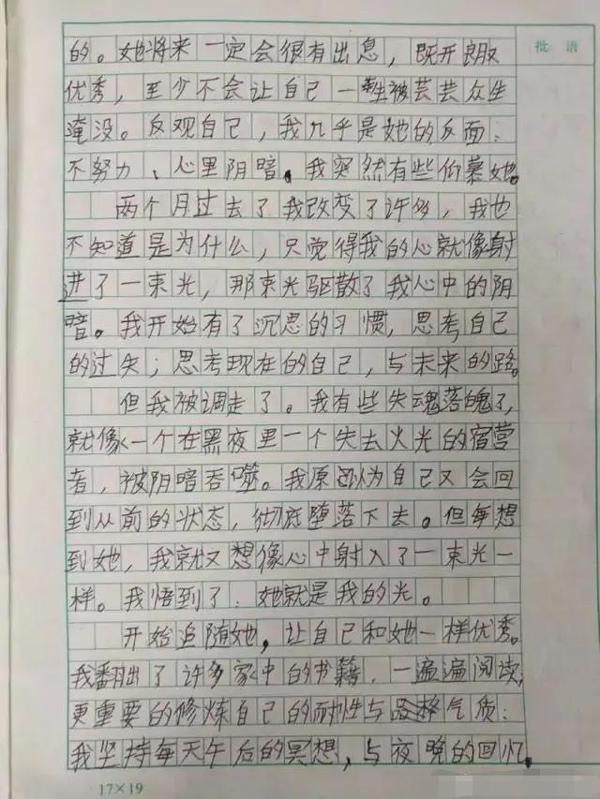 批 语
的。她将来一定会很有出息，既开朗又
优秀，至少不会让自己一生被芸芸众生
淹没。反观自己，我几乎是她的反面：
不努力、心里阴暗。我突然有些仰慕她。
两个月过去了我改变了许多，我也
不知道是为什么，只觉得我的心就像射
进了一束光，那束光驱散了我心中的阴
暗。我开始有了沉思的习惯，思考自己
的过失；思考现在的自己，与未来的路。
但我被调走了。我有些失魂落魄了，
就像一个在黑夜里一个失去火光的宿营
者，被阴暗吞噬。我原以为自己又会回
到从前的状态，彻底堕落下去。但每想
到她，我就又想像心中射入了一束光一
样。我悟到了：她就是我的光。
开始追随她，让自己和她一样优秀。
我翻出了许多家中的书籍，一遍遍阅读，
更重要的修炼自己的耐性与气质：
我坚持每天午后的冥想，与夜晚的回忆。
17×19